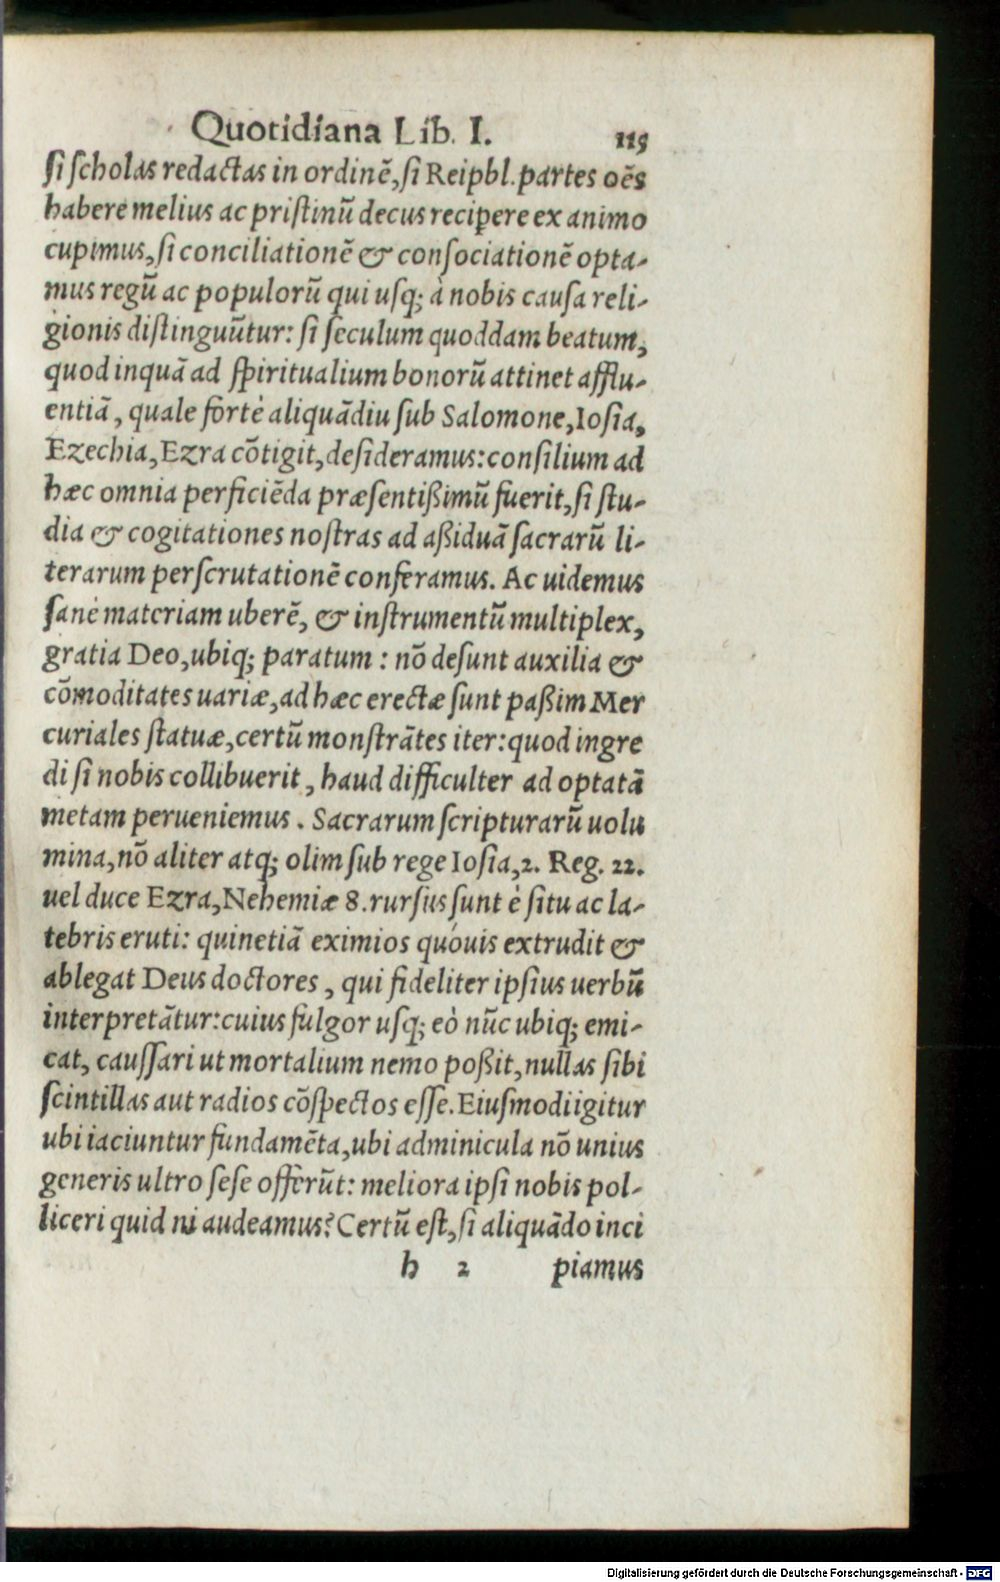 Quotidiana Lib. I. 115
si scholas redactas in ordinẽ, si Reipbl. partes oẽs
habere melius ac pristinũ decus recipere ex animo
cupimus, si conciliationẽ & consociationẽ opta-
mus regũ ac populorũ qui usq; à nobis causa reli-
gionis distinguũtur: si seculum quoddam beatum,
quod inquã ad spiritualium bonorũ attinet afflu-
entiã, quale fortè aliquãdiu sub Salomone, Iosia,
Ezechia, Ezra cõtigit, desideramus: consilium ad
hæc omnia perficiẽda præsentißimũ fuerit, si stu-
dia & cogitationes nostras ad aßiduã sacrarũ li-
terarum perscrutationẽ conferamus. Ac uidemus
sanè materiam uberẽ, & instrumentũ multiplex,
gratia Deo, ubiq; paratum : nõ desunt auxilia &
cõmoditates uariæ, ad hæc erectæ sunt paßim Mer
curiales statuæ, certũ monstrãtes iter: quod ingre
di si nobis collibuerit, haud difficulter ad optatã
metam perueniemus. Sacrarum scripturarũ uolu
mina, nõ aliter atq; olim sub rege Iosia, 2. Reg. 22.
uel duce Ezra, Nehemiæ 8. rursus sunt è situ ac la-
tebris eruti: quinetiã eximios quóuis extrudit &
ablegat Deus doctores, qui fideliter ipsius uerbũ
interpretãtur: cuius fulgor usq; eò nũc ubiq; emi-
cat, caussari ut mortalium nemo poßit, nullas sibi
scintillas aut radios cõspectos esse. Eiusmodi igitur
ubi iaciuntur fundamẽta, ubi adminicula nõ unius
generis ultro sese offerũt: meliora ipsi nobis pol-
liceri quid ni audeamus? Certũ est, si aliquãdo inci
h 2 piamus
Digitalisierung gefördert durch die Deutsche Forschungsgemeinschaft - DFG